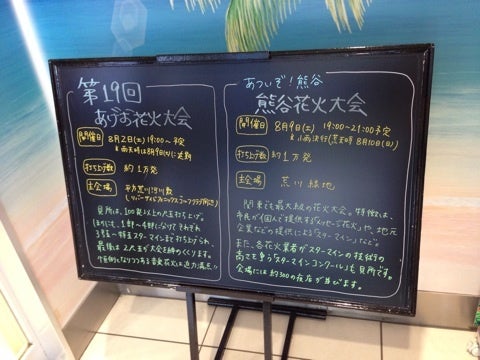 第19回
あげお花火大会
開催日 8月2日(土) 19:00〜予定
※雨天時は8月9日(土)に延期
打ち上げ数 約1万発
主会場 平方荒川河川敷
(リバーサイドフェニックスゴルフクラブ付近)
見所は、100発以上の大玉打ち上げ。
ほかにも、1部〜4部になってそれぞれ
3号玉〜特玉スターマインまで打ち上げられ、
最後は2尺玉が大会を締めくくります。
恒例となりつつある音楽花火は迫力満点!!
あついぞ!熊谷
熊谷花火大会
開催日 8月9日(土) 19:00〜21:00予定
※小雨決行(荒天時8月10日(日))
打ち上げ数 約1万発
主会場 荒川緑地
関東でも最大級の花火大会。特徴は、
市民が個人で提供する「メッセージ花火」や、地元
企業などの提供による「スターマイン」など。
また、各花火業者がスターマインの技術の
高さを争う「スターマインコンクール」も見所です。
会場には約300の夜店が並びます。